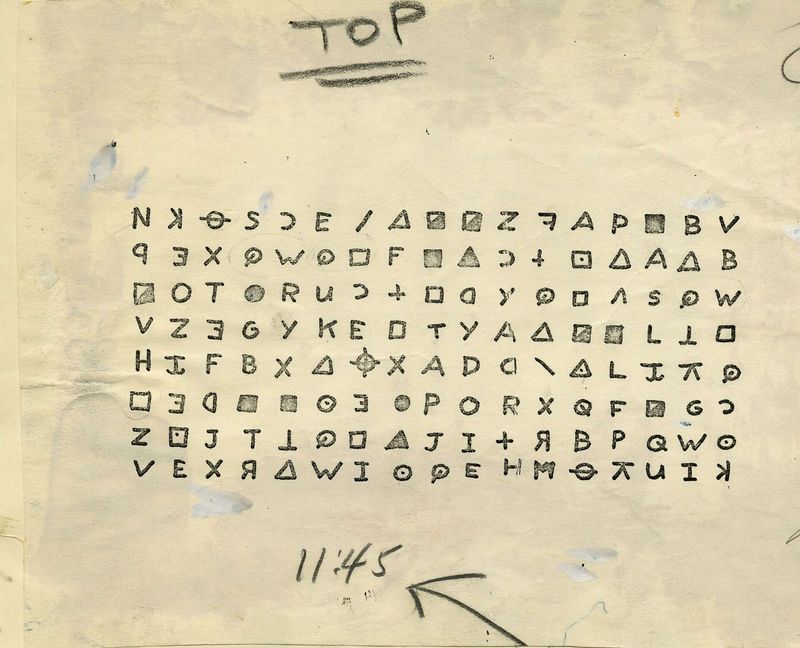 TOP
N ꓘ ⊖ S Ɔ E / △ ◪ ◪ Z ꟻ A P ■ B V
ꟼ Ǝ X Q W Q □ F ■ ▲ Ɔ + ⊡ △ A △ B
◪ O T ● R U Ɔ + □ ᗡ Y Q □ Λ S Q W
V Z Ǝ G Y K E □ T Y A △ ◪ ■ L ⊥ □
H I F B X △ ⌖ X A D ᗡ \ ◬ L I π Q
□ Ǝ ᗡ ■ ■ ⊙ Ǝ ● P O R X Q F ◪ G Ɔ
Z ⊡ J T ⊥ Q □ ▲ J I + Я B P Q W ⊙
V E X Я △ W I ⊙ Q E H M ⊖ π U I ꓘ
11:45